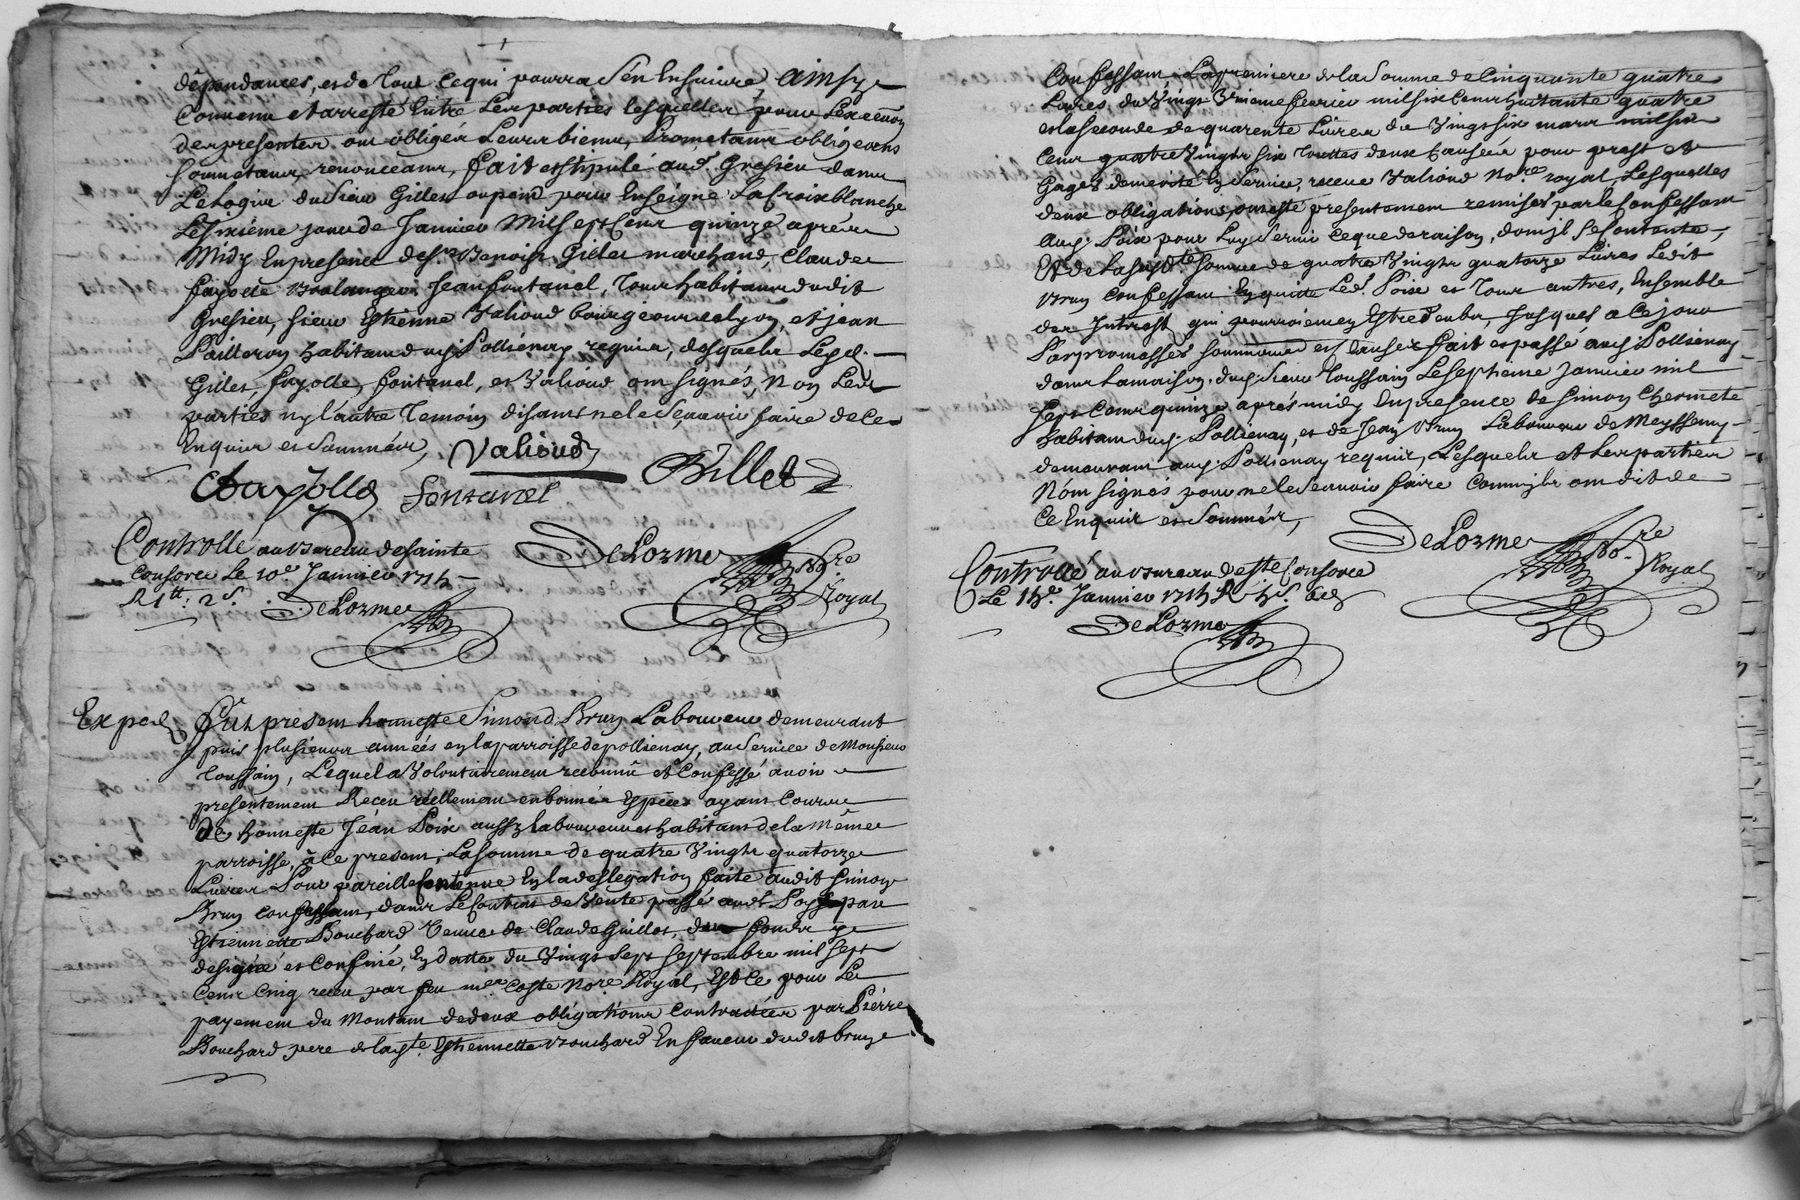 dépendances, et de tout ce qui pourra s'en ensuivre, ainsy
convenu et arresté entre les parties lesquelles pour l'exeõn
des presentes ont obligés leurs biens, prometans obligeans
soumetans, renonceans, fait et stipulé aud. Gresieu dans
le logis du sieur Gilles ou pend pour enseigne la Croix blanche
le sixiéme jour de Janvier mil sept cens quinze aprés
midy en presence de sr Benoist Gilles marchand, Claude
fayolle boulanger Jean fontanel, tous habitans dudit
Gresieu, sieur Estienne Valioud bourgeois de lyon, et jean
Pailleron habitant dud. Pollienay requis, desquels lesd.
Gilles, fayolle, fontanel, et Valioud ont signés, non les
parties ny l'autre temoin disans ne le sçavoir faire de ce
enquis et sommés,
Valioud
C fayolle fontanel BGilles
Controllé au bureau de Sainte
Consorce le 10e Janvier 1715
R 1tt. 2s. DeLorme
DeLorme Nore
Royal
Exped. Fut present honneste Simond Brun Laboureur demeurant
puis plusieurs années en la parroisse de pollienay, au service de Monsieur
toussain, lequel a volontairement reconnû et confessé avoir
presentement receu réellement en bonnes especes ayans cours
de honneste Jean Poix aussy laboureur et habitant de la même
parroisse, à ce present, la somme de quatre vingts quatorze
livres pour pareille contenue en la dellegation faite audit Simon
Brun confessant, dans le contrat de vente passé aud. Poix par
Estiennette Bouchard veuve de Claude Guillot, des fonds y
designé et confiné, en datte du vingt sept septembre mil sept
cens cinq receu par feu me Coste Nore Royal, est ce pour le
payement du montant de deux obligations contractées par Pierre
Bouchard pere de la ste. Estiennette Bouchard en faveur dudit brun
confessant la premiere de la somme de cinquante quatre
livres, du vingt unieme fevrier mil six cens huitante quatre
et la seconde de quarente livres du vingt six mars mil six
cens quatre vingts six toutes deux causées pour prest et
gages de merité en service, receue Valioud nore. royal, lesquelles
deux obligations, ont esté presentement remises par le confessant
aud. Poix pour luy servir ce que de raison, dont jl se contente,
et de la susd.te somme de quatre vingts quatorze livres ledit
brun confessant en quitte led. Poix et tous autres, ensemble
des jnterest qui pourroient en estre deubs, jusques a ce jour
par promesses soumissions et clauses fait et passé aud. Pollienay
dans la maison dud. sieur toussain le septieme janvier mil
sept cens quinze aprés midy en presence de simon Chermete
habitant dud. Pollienay, et de Jean brun laboureur de Meyssemy
demeurant aud. Pollienay requis, lesquels et les parties
n'ont signés pour ne le sçavoir faire comm'jls ont dit de
ce enquis et sommés,
DeLorme Nore.
Royal
Controllé au bureau de Ste Consorce
le 15e. Janvier 1715 R 5s. 6d
DeLorme